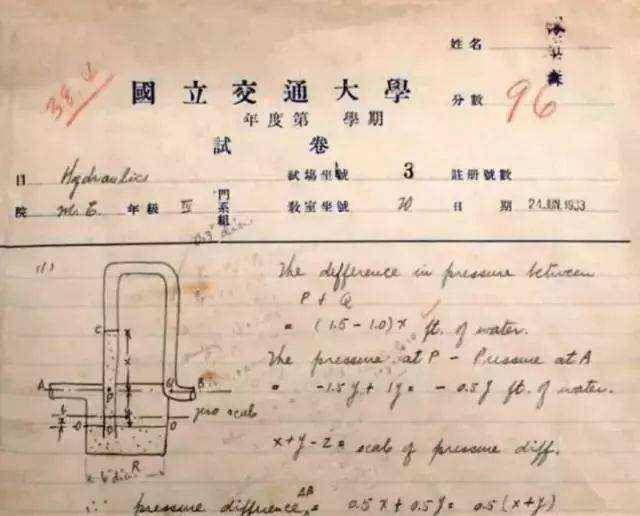 姓名
國立交通大學
分數 96
年度第 學期
試卷
目 Hydraulics 試場坐號 3 註册號數
院 M.E. 年級 III 門系組 教室坐號 20 日期 24 JUN 1933
(1) The difference in pressure between
P + Q
= (1.5 - 1.0) x ft. of water.
The pressure at P - Pressure at A
= -1.5 y + 1 y = - 0.5 y ft. of water.
x + y - z = scale of pressure diff.
∴ pressure difference AB = 0.5 x + 0.5 y = 0.5 (x + y)
C
x
A
P
Q
B
y
zero scale
O
O
R
6" dia.